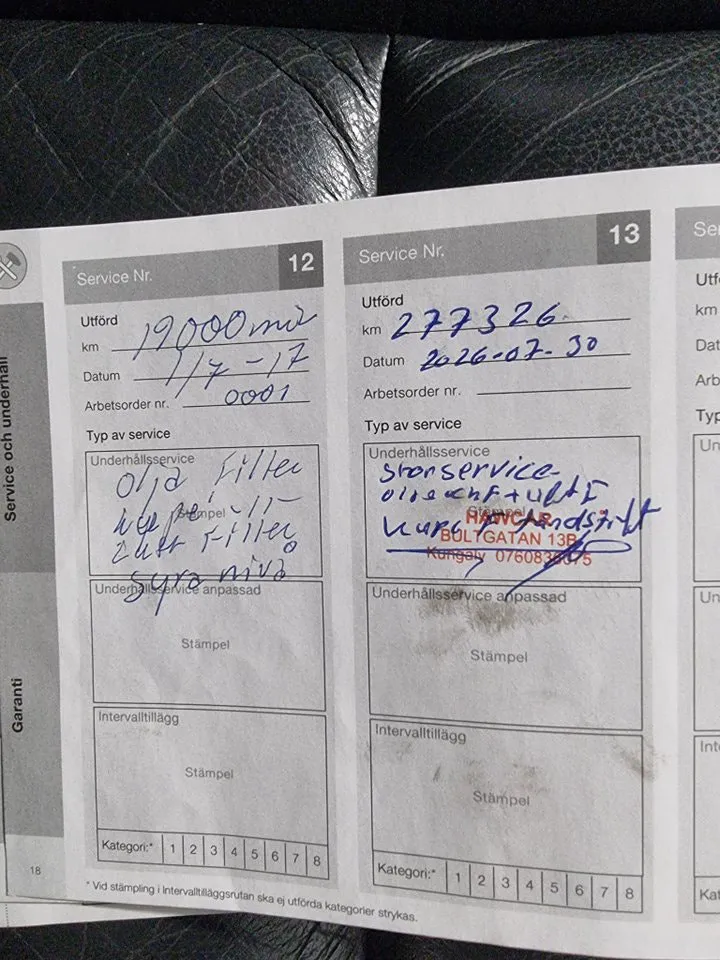 Service och underhåll
Garanti
18
Service Nr. 12
Utförd
km 19000 mil
Datum 1/7-17
Arbetsorder nr. 0001
Typ av service
Underhållsservice
Olja Filter
Stämpel -11-
Luft Filter
Syra nivå
Underhållsservice anpassad
Stämpel
Intervalltillägg
Stämpel
Kategori:* 1 2 3 4 5 6 7 8
Service Nr. 13
Utförd
km 277326
Datum 2026-07-30
Arbetsorder nr.
Typ av service
Underhållsservice
Storservice
Stämpel
tändstift
BULTGATAN 13B
Kungälv
Underhållsservice anpassad
Stämpel
Intervalltillägg
Stämpel
Kategori:* 1 2 3 4 5 6 7 8
* Vid stämpling i Intervalltilläggsrutan ska ej utförda kategorier strykas.
Se
Utf
km
Dat
Arb
Typ
Un
Un
Int
Kat